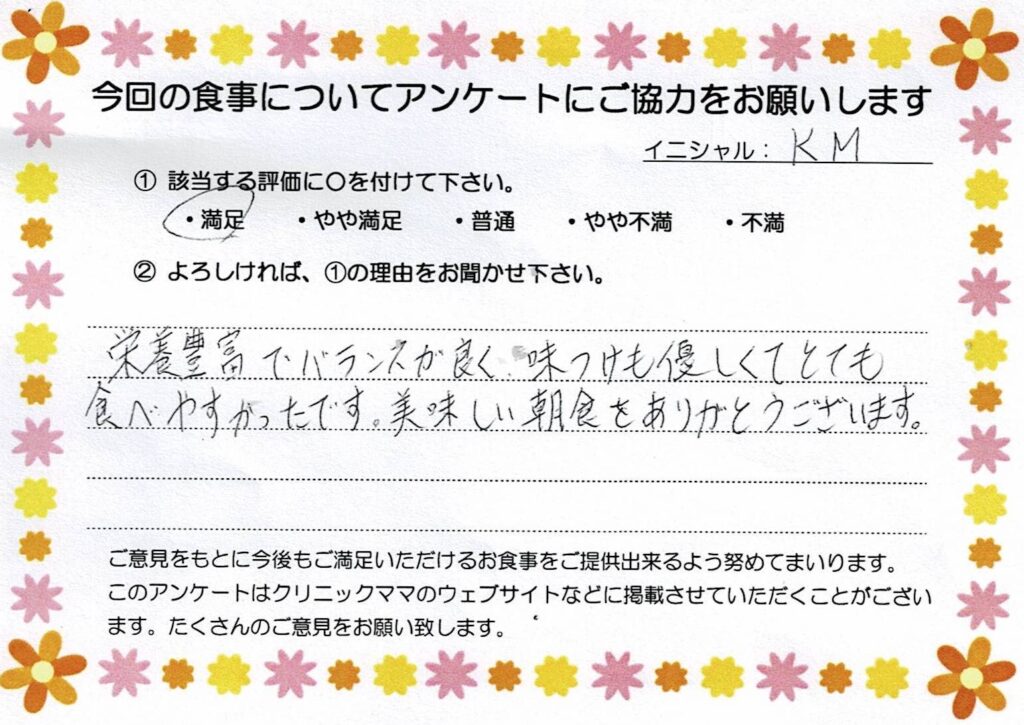 今回の食事についてアンケートにご協力をお願いします
イニシャル： KM
① 該当する評価に〇を付けて下さい。
・満足 ・やや満足 ・普通 ・やや不満 ・不満
② よろしければ、①の理由をお聞かせ下さい。
栄養豊富でバランスが良く、味つけも優しくてとても
食べやすかったです。美味しい朝食をありがとうございます。
ご意見をもとに今後もご満足いただけるお食事をご提供出来るよう努めてまいります。
このアンケートはクリニックママのウェブサイトなどに掲載させていただくことがござい
ます。たくさんのご意見をお願い致します。